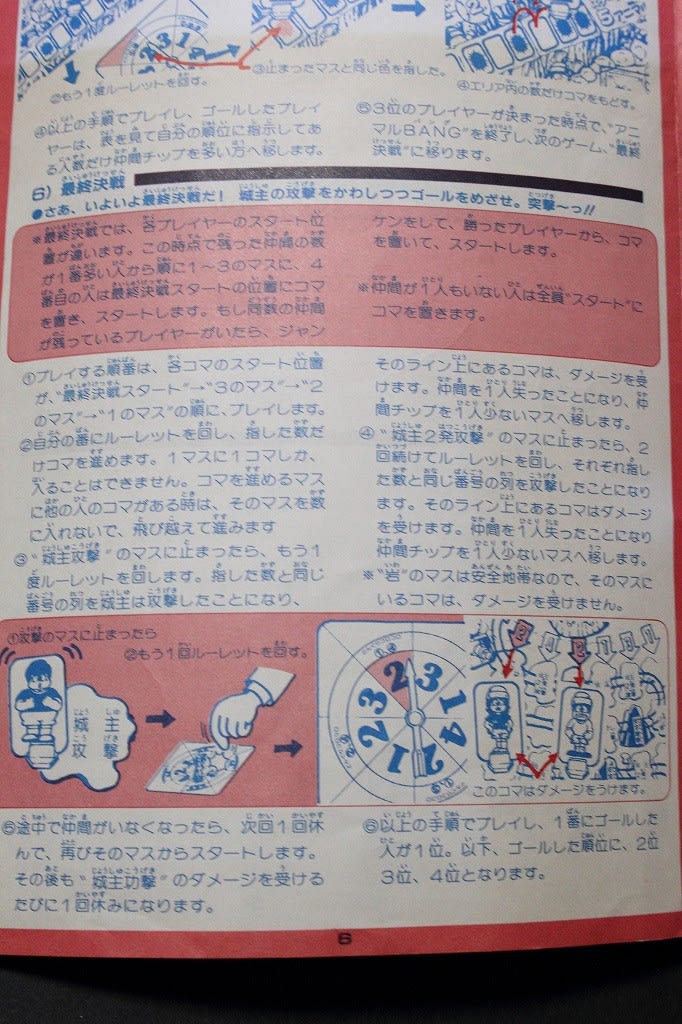 ②もう1度ルーレットを回す。
③止まったマスと同じ色を指した。
④エリア内の数だけコマをもどす。
④以上の手順でプレイし、ゴールしたプレイ
ヤーは、表を見て自分の順位に指示してあ
る人数だけ仲間チップを多い方へ移します。
⑤3位のプレイヤーが決まった時点で、"アニ
マルBANG"を終了し、次のゲーム、"最終
決戦"に移ります。
6）最終決戦
●さあ、いよいよ最終決戦だ！ 城主の攻撃をかわしつつゴールをめざせ。突撃〜っ!!
※最終決戦では、各プレイヤーのスタート位
置が違います。この時点で残った仲間の数
が1番多い人から順に1〜3のマスに、4
番目の人は最終決戦スタートの位置にコマ
を置き、スタートします。もし同数の仲間
が残っているプレイヤーがいたら、ジャン
ケンをして、勝ったプレイヤーから、コマ
を置いて、スタートします。
※仲間が1人もいない人は全員"スタート"に
コマを置きます。
①プレイする順番は、各コマのスタート位置
が、"最終決戦スタート"→"3のマス"→"2
のマス"→"1のマス"の順に、プレイします。
②自分の番にルーレットを回し、指した数だ
けコマを進めます。1マスに1コマしか、
入ることはできません。コマを進めるマス
に他の人のコマがある時は、そのマスを数
に入れないで、飛び越えて進みます
③"城主攻撃"のマスに止まったら、もう1
度ルーレットを回します。指した数と同じ
番号の列を城主は攻撃したことになり、
そのライン上にあるコマは、ダメージを受
けます。仲間を1人失ったことになり、仲
間チップを1人少ないマスへ移します。
④"城主2発攻撃"のマスに止まったら、2
回続けてルーレットを回し、それぞれ指し
た数と同じ番号の列を攻撃したことになり
ます。そのライン上にあるコマはダメージ
を受けます。仲間を1人失ったことになり
仲間チップを1人少ないマスへ移します。
※"岩"のマスは安全地帯なので、そのマスに
いるコマは、ダメージを受けません。
①攻撃のマスに止まったら
②もう1回ルーレットを回す。
城主
攻撃
このコマはダメージをうけます。
⑤途中で仲間がいなくなったら、次回1回休
んで、再びそのマスからスタートします。
その後も"城主功撃"のダメージを受ける
たびに1回休みになります。
⑥以上の手順でプレイし、1番にゴールした
人が1位。以下、ゴールした順位に、2位
3位、4位となります。
6